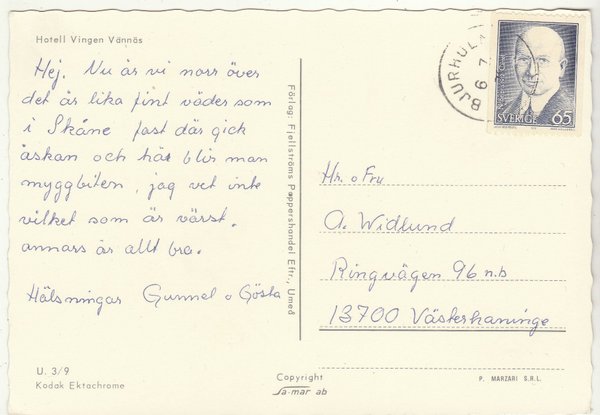 Hotell Vingen Vännäs
Hej. Nu är vi norr över
det är lika fint väder som
i Skåne fast där gick
åskan och här blir man
myggbiten, jag vet inte
vilket som är värst.
annars är allt bra.
Hälsningar Gunnel o Gösta
U. 3/9
Kodak Ektachrome
Förlag: Fjellströms Pappershandel Eftr., Umeå
BJURHOL
6 7
SVERIGE 65
Hr. o Fru
A. Widlund
Ringvägen 96 n.b
13700 Västerhaninge
Copyright
Sa-mar ab
P. MARZARI S.R.L.